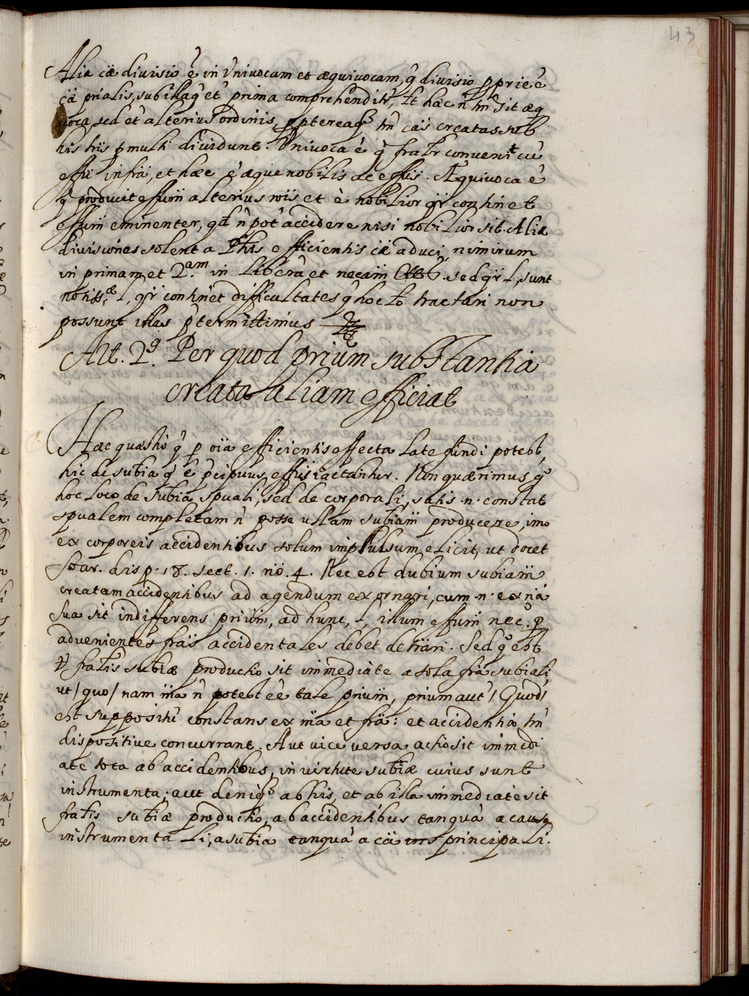 43
Alia cã divisio ẽ in Univocam et æquivocam, q̃ divisio pprie ẽ
cã prĩalis, sub illaq̃ et prima comprehenditr, Et hæc ñ tm̃ sit æq
voca, sed et alterius ordinis, proptereaq̃ tm̃ cãs creatas sub
his tris multi dividunt. Univoca ẽ q̃ fratr convenit cũ
effũ in frã, et hæc ẽ æque nobilis ac effũs. Æquivoca ẽ
q̃ producit effum alterius rõis et ẽ nobilior qr continet
effum eminenter, qd ñ pot accidere nisi nobilior sit. Aliæ
divisiones solent a Phis efficientis cæ aduci, nimirum
in primam et 2.am in liberã et necãm sed qr l, sunt
notiss.æ l, qr continet difficultates q̃ hoc lo tractari non
possunt illas ptermittimus
Art. 2.us Per quod prium substantia
creata aliam efficiat
Hæc quæstio q̃ p oĩa efficientis effecta late fundi potest,
hic de subia q̃ ẽ pcipuus effus iactantur. Non quærimus q̃
hoc loco de subia spuali, sed de corporali, satis .n. constat
spualem completam ñ posse ullam subiam producere, imo
ex corporeis accidentibus solum impulsum elicit, ut docet
Soar. disp. 18. sect. 1. nõ. 4. Nec est dubium subiam
creatam accidentibus ad agendum exornari, cum .n. ex nã
sua sit indifferens prium, ad hunc, l, illum effum nec.o p
advenientes frãs accidentales debet detrãri. Sed q.o est
V fratis subiæ productio sit immediate a sola frã subiali
ut / quo / nam mã ñ potest ẽe tale prium, prium aut / Quod /
est suppositũ constans ex mã et frã: et accidentia tm̃
dispositive concurrant. Aut vice versa actio sit immedi
ate tota ab accidentibus, in virtute subiæ cuius sunt
instrumenta: aut deniq. ab his, et ab illa immediate sit
fratis subiæ productio, ab accidentibus tanquã a causa
instrumentali, a subia tanquã a cã principali.